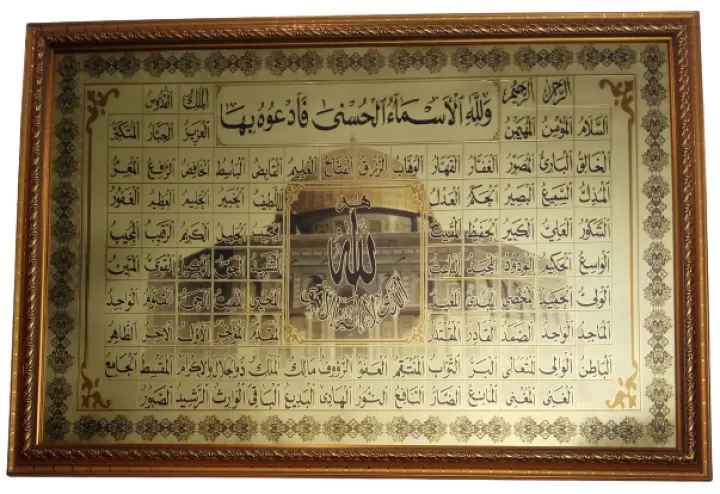 الرحمن الرحيم الملك القدوس
ولله الأسماء الحسنى فادعوه بها
السلام المؤمن المهيمن العزيز الجبار المتكبر
الخالق البارئ المصور الغفار القهار الوهاب الرزاق الفتاح العليم القابض الباسط الخافض الرافع المعز
المذل السميع البصير الحكم العدل اللطيف الخبير الحليم العظيم الغفور
هو
الله
الشكور العلي الكبير الحفيظ المقيت الحسيب الجليل الكريم الرقيب المجيب
الواسع الحكيم الودود المجيد الباعث الشهيد الحق الوكيل القوي المتين
الذي لا إله إلا هو
الولي الحميد المحصي المبدئ المعيد المحيي المميت الحي القيوم الواجد
الماجد الواحد الصمد القادر المقتدر المقدم المؤخر الأول الآخر الظاهر
الباطن الوالي المتعالي البر التواب المنتقم العفو الرؤوف مالك الملك ذو الجلال والإكرام المقسط الجامع
الغني المغني المانع الضار النافع النور الهادي البديع الباقي الوارث الرشيد الصبور